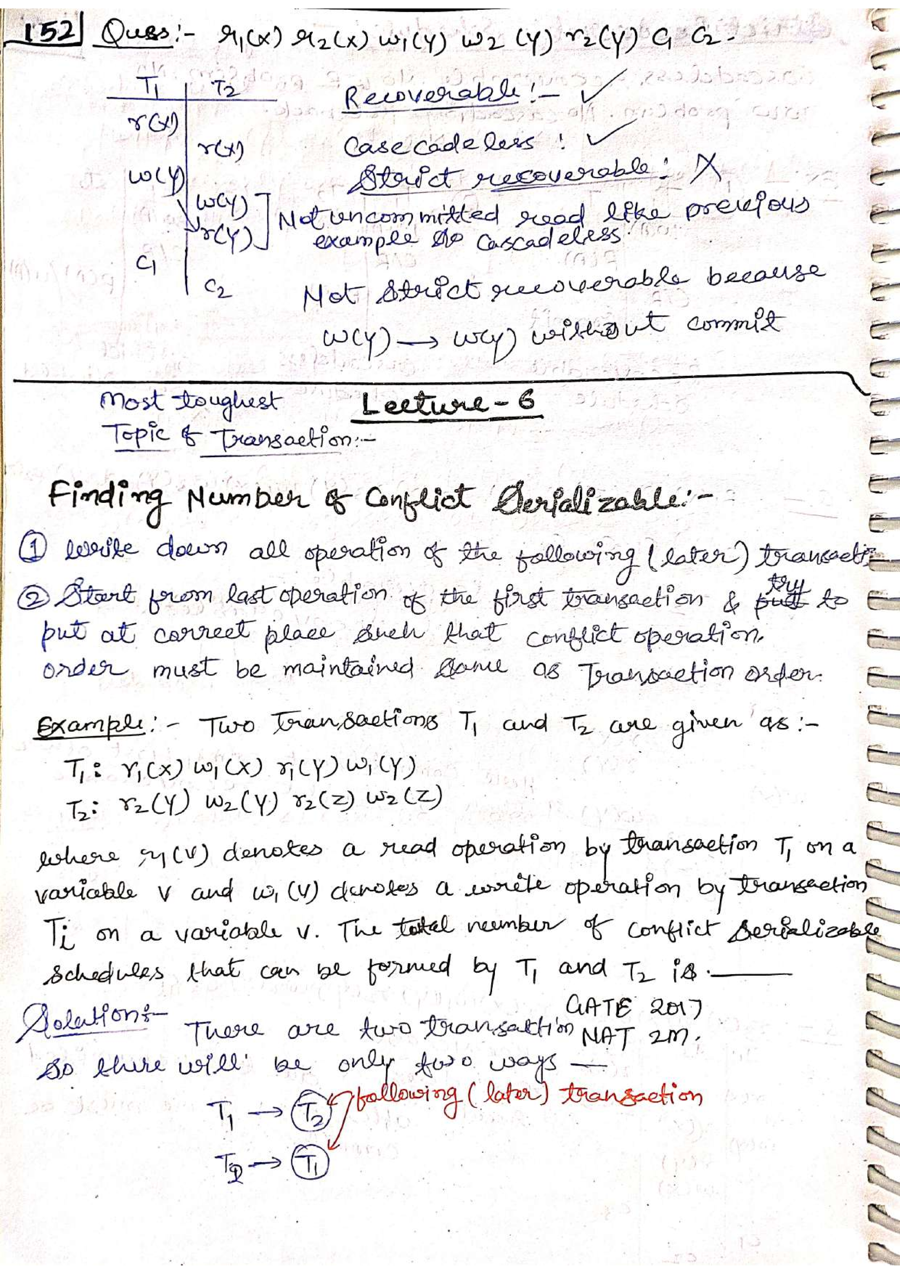 152 Ques:- r1(x) r2(x) w1(y) w2(y) r2(y) C1 C2.
T1 T2
r(x)
r(x)
w(y)
w(y)
r(y)
C1
C2
Recoverable:- ✓
Casecadeless: ✓
Strict recoverable: X
Not uncommitted read like previous
example so cascadeless
Not Strict recoverable because
w(y) → w(y) without commit
Most toughest Lecture-6
Topic of Transaction:-
Finding Number of Conflict Serializable:-
① Write down all operation of the following (later) transacti
② Start from last operation of the first transaction & try to
put at correct place such that conflict operation
order must be maintained same as Transaction order.
Example:- Two transactions T1 and T2 are given as:-
T1: r1(x) w1(x) r1(y) w1(y)
T2: r2(y) w2(y) r2(z) w2(z)
where r1(v) denotes a read operation by transaction T1 on a
variable v and w1(v) denotes a write operation by transaction
Ti on a variable v. The total number of conflict serializable
schedules that can be formed by T1 and T2 is. ______
GATE 2017
Solution:- There are two transaction NAT 2m.
so there will be only two ways —
T1 → T2 following (later) transaction
T2 → T1